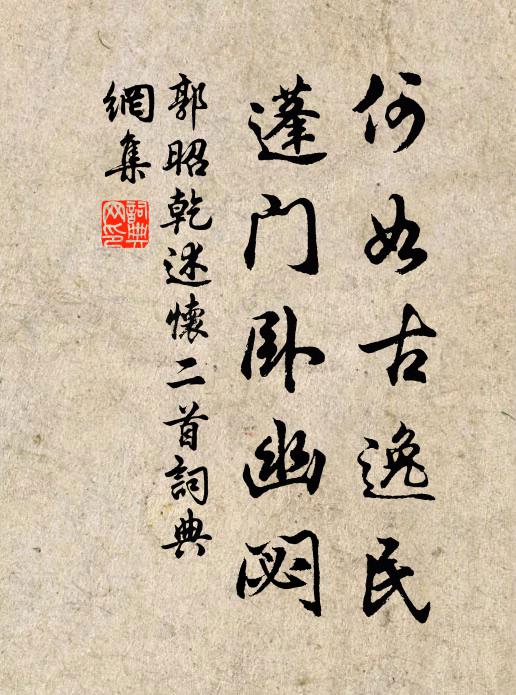 何如古逸民
蓬门卧幽閟
郭昭乾述懷二首詞典
網集
詞典
网印